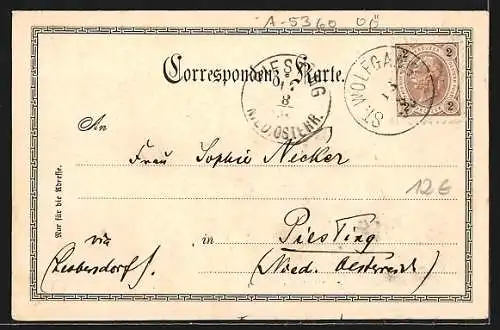 A-5360 OÖ
Correspondenz-Karte.
PIESTING
8
NIED. OSTERR.
ST. WOLFGANG
2 2
An
Frau Sophie Necker
12 €
Nur für die Adresse.
via in Piesting
(Leobersdorf). (Nied. Oesterreich)